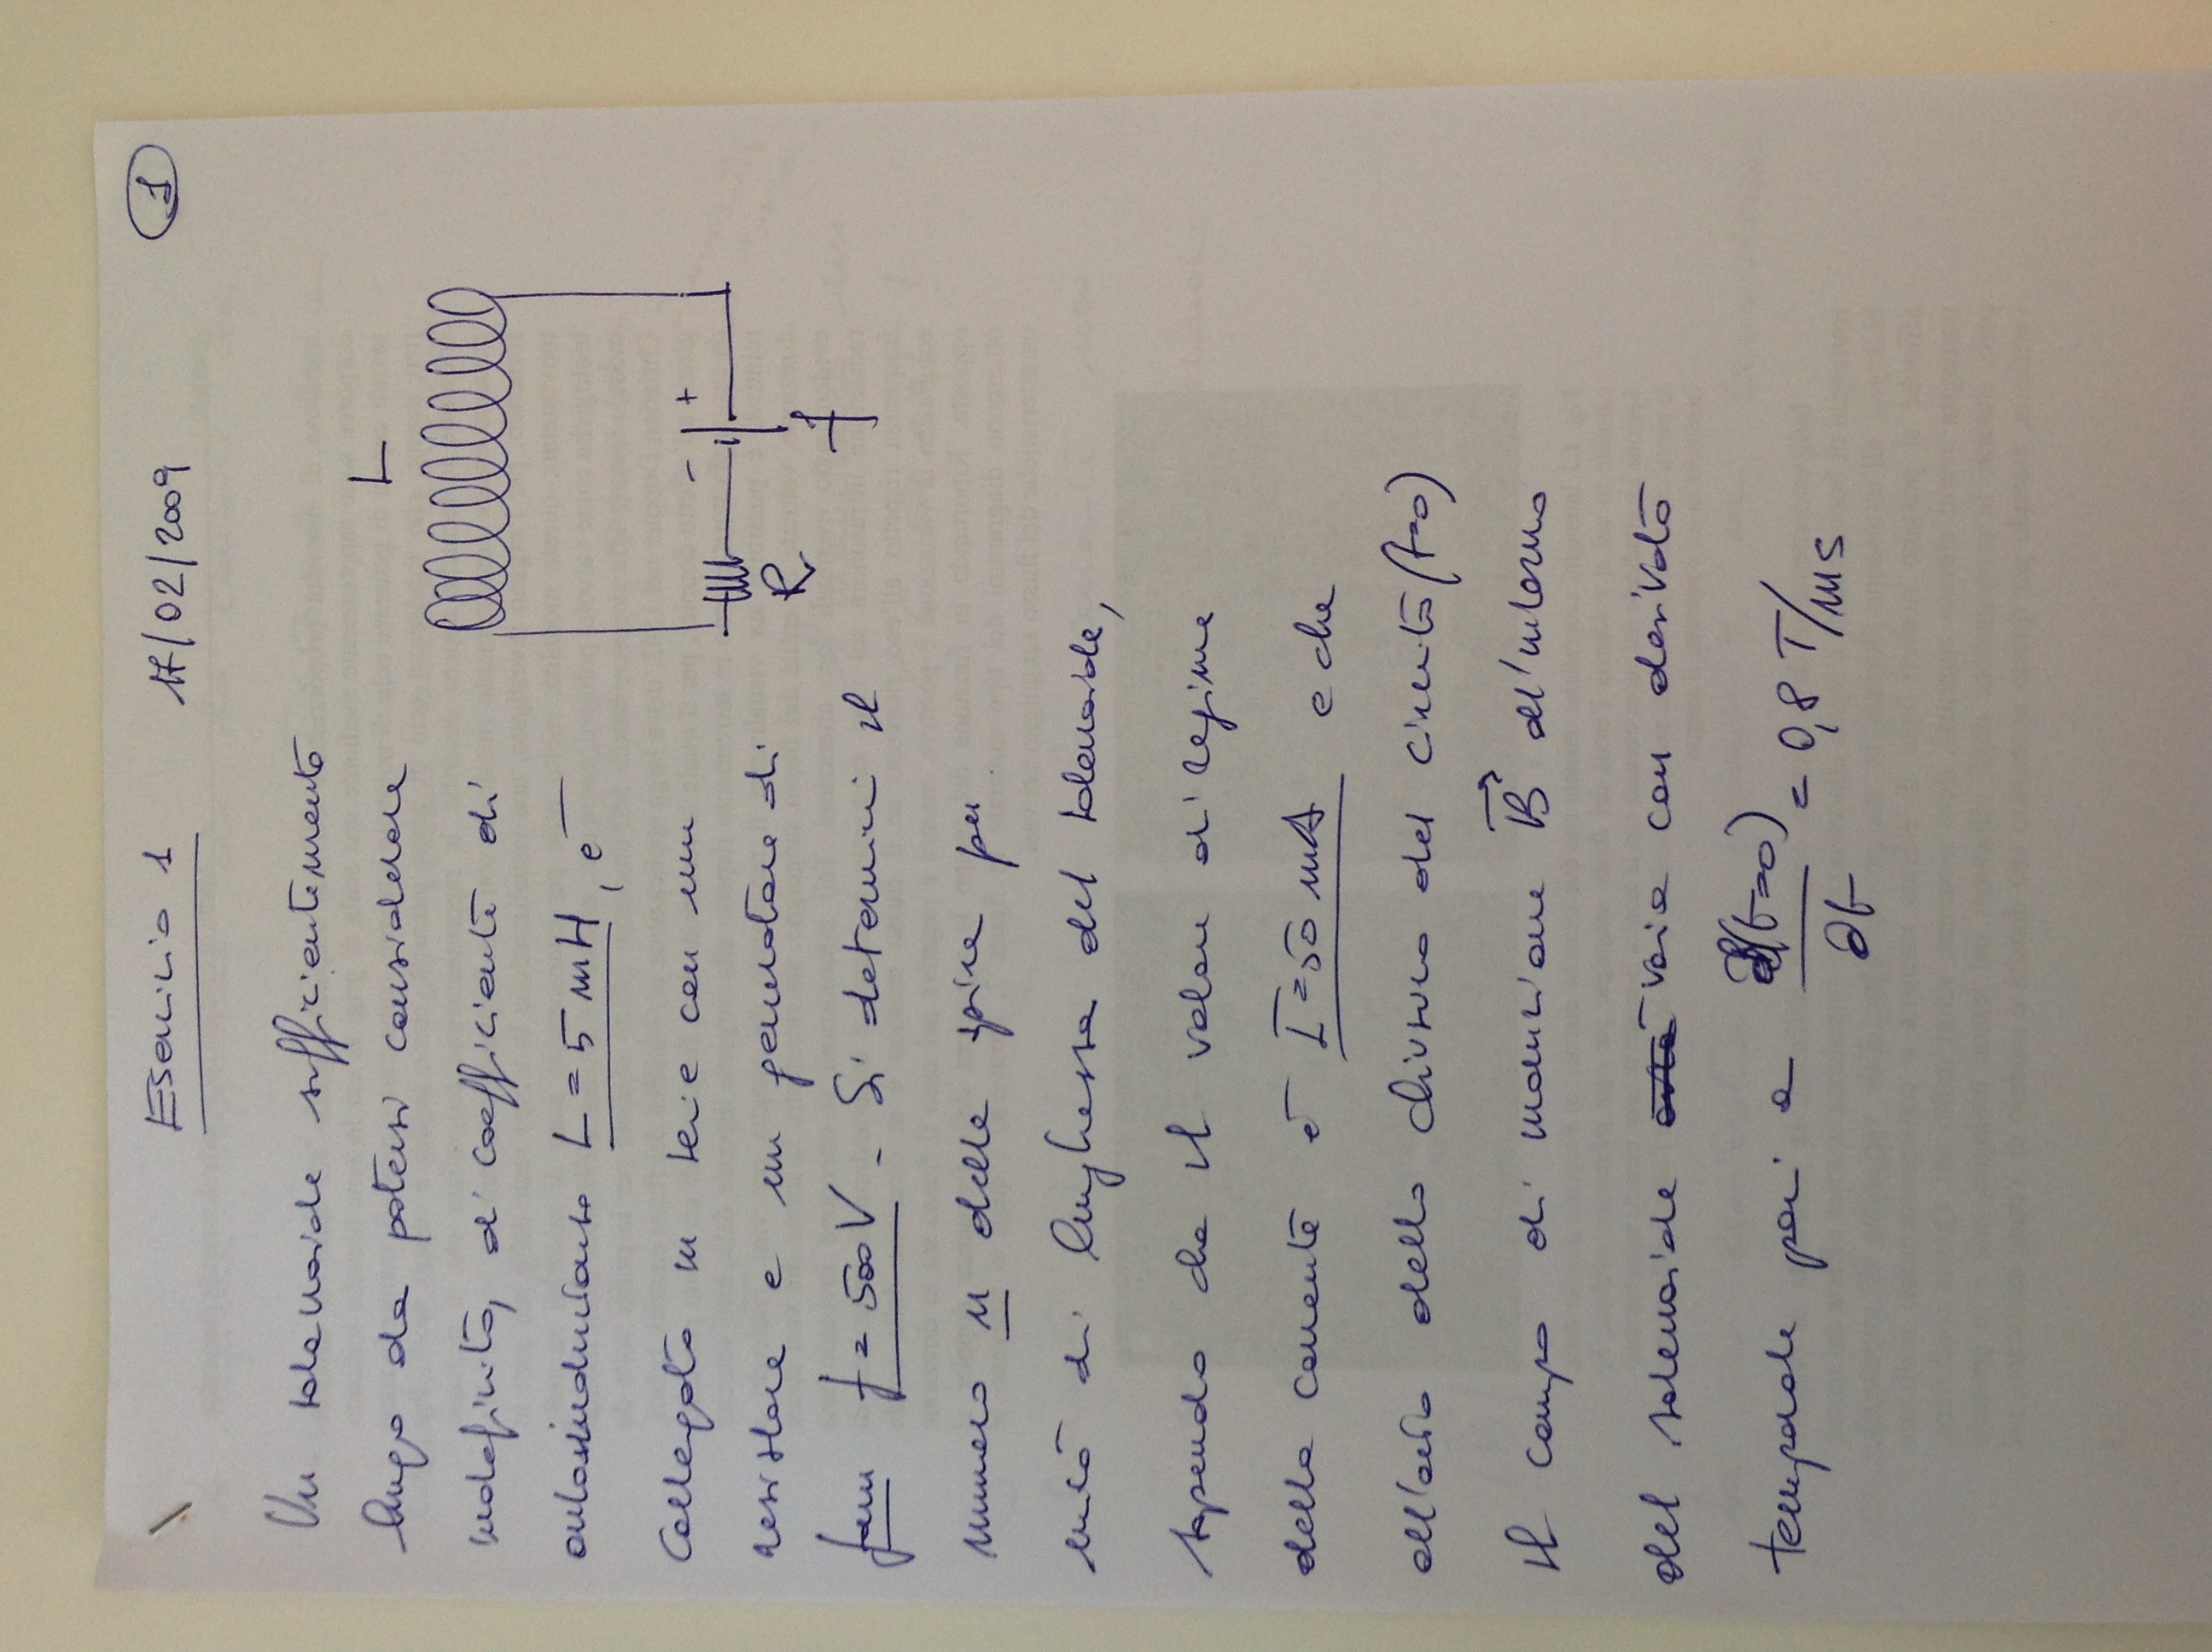 Esercizio 1 17/02/2009 1
Un solenoide sufficientemente
lungo da potersi considerare
indefinito, di coefficiente di
autoinduzione L = 5 mH, è
collegato in serie con un
resistore e un generatore di
fem f = 500 V. Si determini il
numero n delle spire per
unità di lunghezza del solenoide,
sapendo che il valore di regime
della corrente è I = 50 mA e che
all'atto della chiusura del circuito (t=0)
il campo di induzione B⃗ all'interno
del solenoide varia con derivata
temporale pari a ∂B(t=0)/∂t = 0,8 T/ms
L
- +
R
f